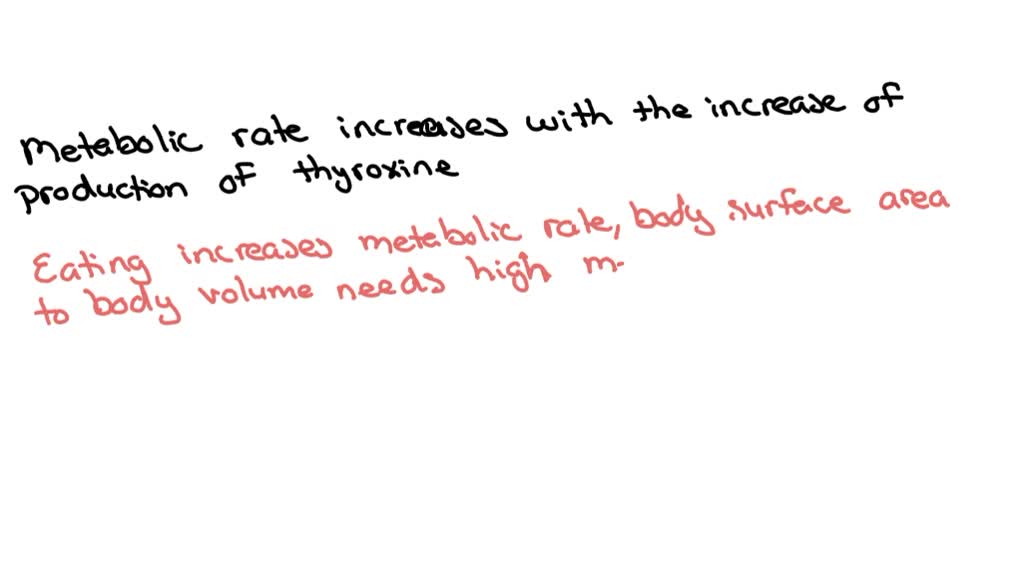 Metabolic rate increases with the increase of
production of thyroxine
Eating increases metabolic rate, body surface area
to body volume needs high m.